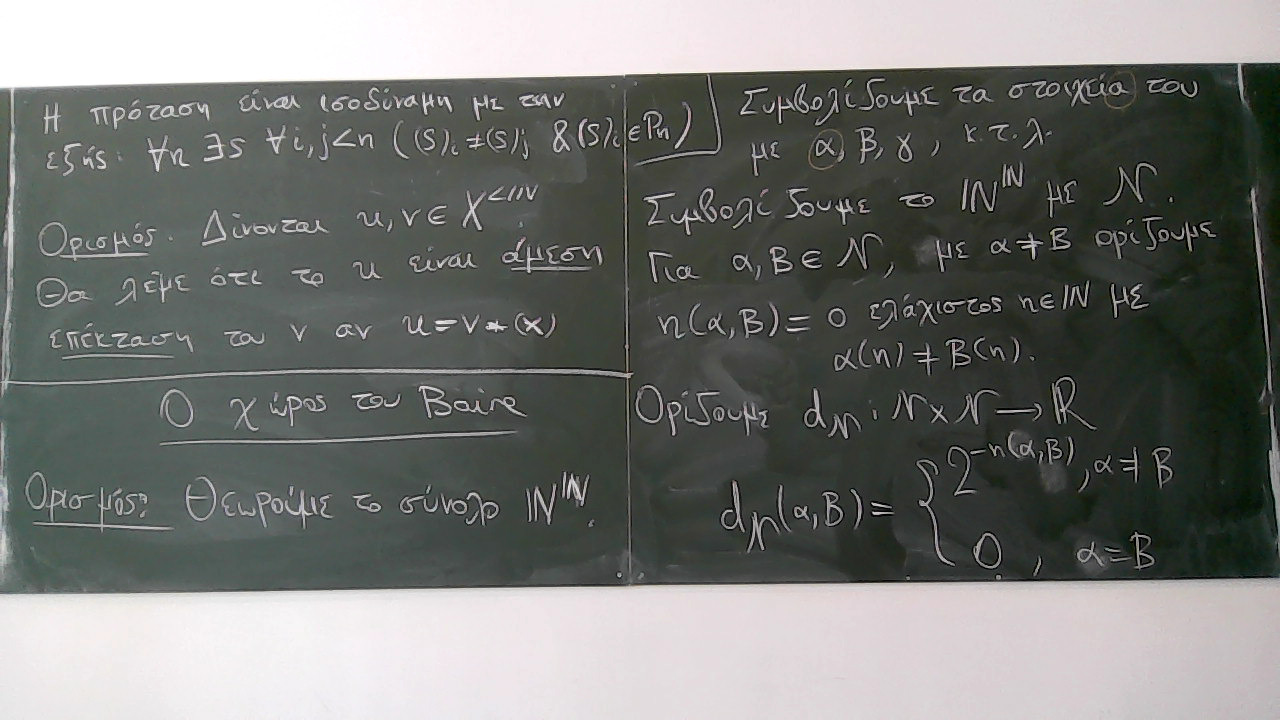 Η πρόταση είναι ισοδύναμη με την
εξής: ∀n ∃s ∀i,j<n ((s)ᵢ≠(s)ⱼ &(s)ᵢ∈Pₙ)
Ορισμός. Δίνονται u,v∈ X^{<ℕ}.
Θα λέμε ότι το u είναι άμεση
επέκταση του v αν u=v*(x)
Ο χώρος του Baire
Ορισμός: Θεωρούμε το σύνολο ℕ^ℕ.
Συμβολίζουμε τα στοιχεία του
με α, β, γ, κ.τ.λ.
Συμβολίζουμε το ℕ^ℕ με 𝒩.
Για α,β∈ 𝒩, με α≠β ορίζουμε
n(α,β)= ο ελάχιστος n∈ℕ με
α(n)≠β(n).
Ορίζουμε d_𝒩: 𝒩×𝒩→ℝ
d_𝒩(α,β)= { 2^{-n(α,β)}, α≠β
0, α=β